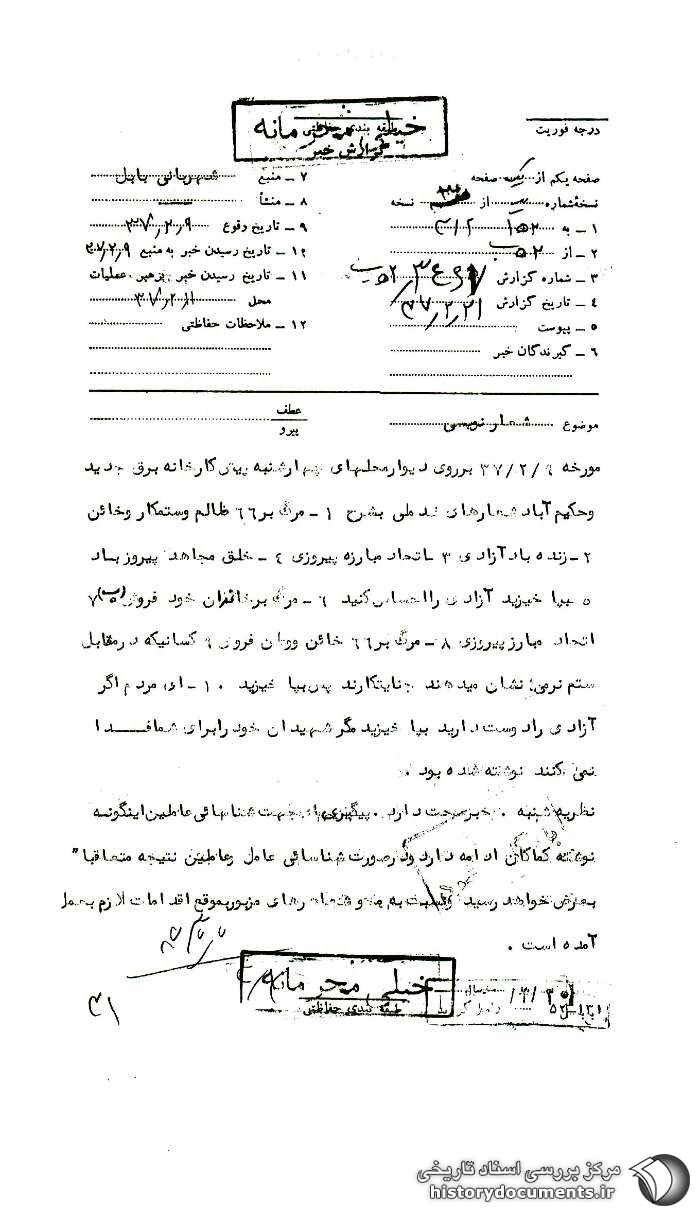 خیلی محرمانه
طبقه بندی حفاظتی
گزارش خبر
درجه فوریت
صفحه یکم از یک صفحه
نسخهٔ شماره از نسخه
۱ - به ۱۵۲ ۳۱۲
۲ - از ۵۲ ب
۳ - شماره گزارش
۴ - تاریخ گزارش ۳۷٫۲٫۲۱
۵ - پیوست
۶ - گیرندگان خبر
۷ - منبع شهربانی بابل
۸ - منشأ
۹ - تاریخ وقوع ۳۷٫۲٫۹
۱۰ - تاریخ رسیدن خبر به منبع ۳۷٫۲٫۹
۱۱ - تاریخ رسیدن خبر برهبر عملیات
محل ۳۷٫۲٫۱۱
۱۲ - ملاحظات حفاظتی
موضوع شعارنویسی
عطف
پیرو
مورخه ۳۷/۲/۹ برروی دیوار محلهای چهارشنبه پیش کارخانه برق جدید
وحکیم آباد شعارهای ضد ملی بشرح ۱ - مرگ بر ۶۶ ظالم وستمکار وخائن
۲ - زنده باد آزادی ۳ - اتحاد مبارزه پیروزی ٤ - خلق مجاهد پیروز باد
۵ - بپا خیزید آزادی را احساس کنید ۶ - مرگ بر خائنان خود فروش ۷
اتحاد مبارز پیروزی ۸ - مرگ بر ۶۶ خائن ووطن فروش ۹ کسانیکه درمقابل
ستم نرمی نشان میدهند جنایتکارند پس بپا خیزید ۱۰ - ای مردم اگر
آزادی را دوست دارید بپا خیزید مگر شهیدان خود را برای شما فـدا
نمی کنند نوشته شده بود .
نظریه شنبه . خبر صحت دارد . پیگیری جهت شناسائی عاملین اینگونه
نوشته کماکان ادامه دارد ودر صورت شناسائی عامل وعاملین نتیجه متعاقبا"
بعرض خواهد رسید ونسبت به محو شعارهای مزبور بموقع اقدامات لازم بعمل
آمده است .
خیلی محرمانه
طبقه بندی حفاظتی
۳۱
مرکز بررسی اسناد تاریخی
historydocuments.ir